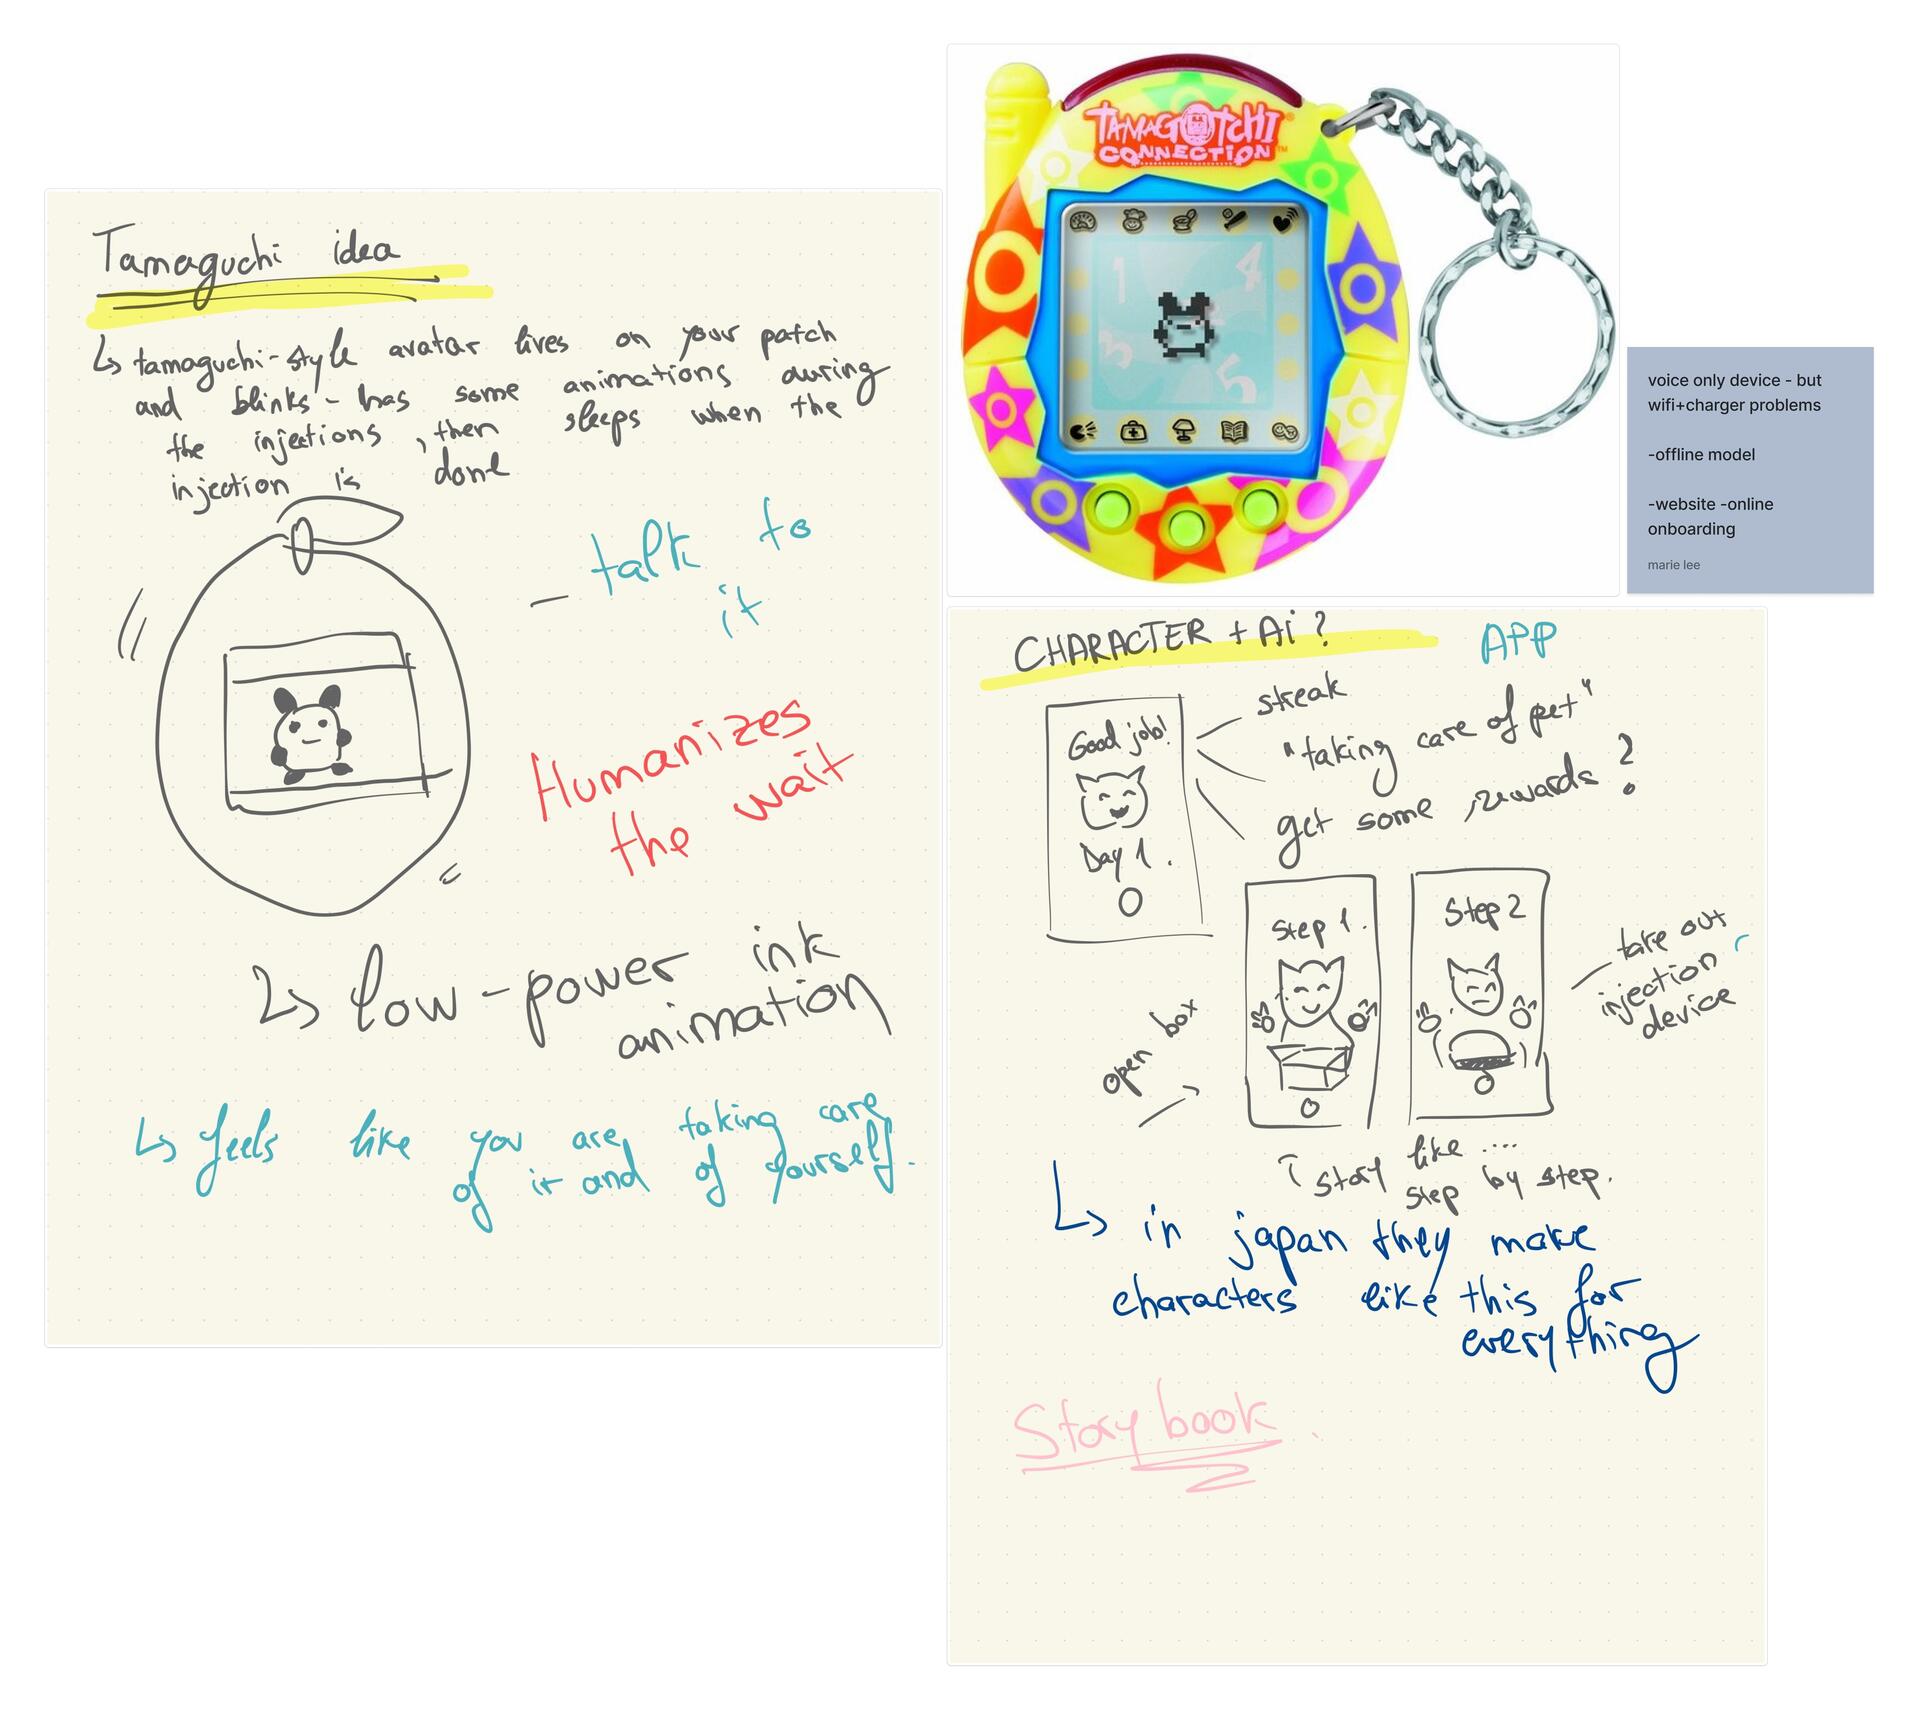 Tamaguchi idea
↳ tamaguchi-style avatar lives on your patch
and blinks - has some animations during
the injections, then sleeps when the
injection is done
- talk to
it
Humanizes
the wait
↳ low-power ink
animation
↳ feels like you are taking care
of it and of yourself.
TAMAGOTCHI
CONNECTION
1 4
3 5
voice only device - but
wifi+charger problems
-offline model
-website -online
onboarding
marie lee
CHARACTER + Ai ? APP
Good job!
Day 1.
streak
"taking care of pet"
get some rewards ?
Step 1.
Step 2
open box
take out
injection
device
story like ....
step by step.
↳ in japan they make
characters like this for
everything
Story book